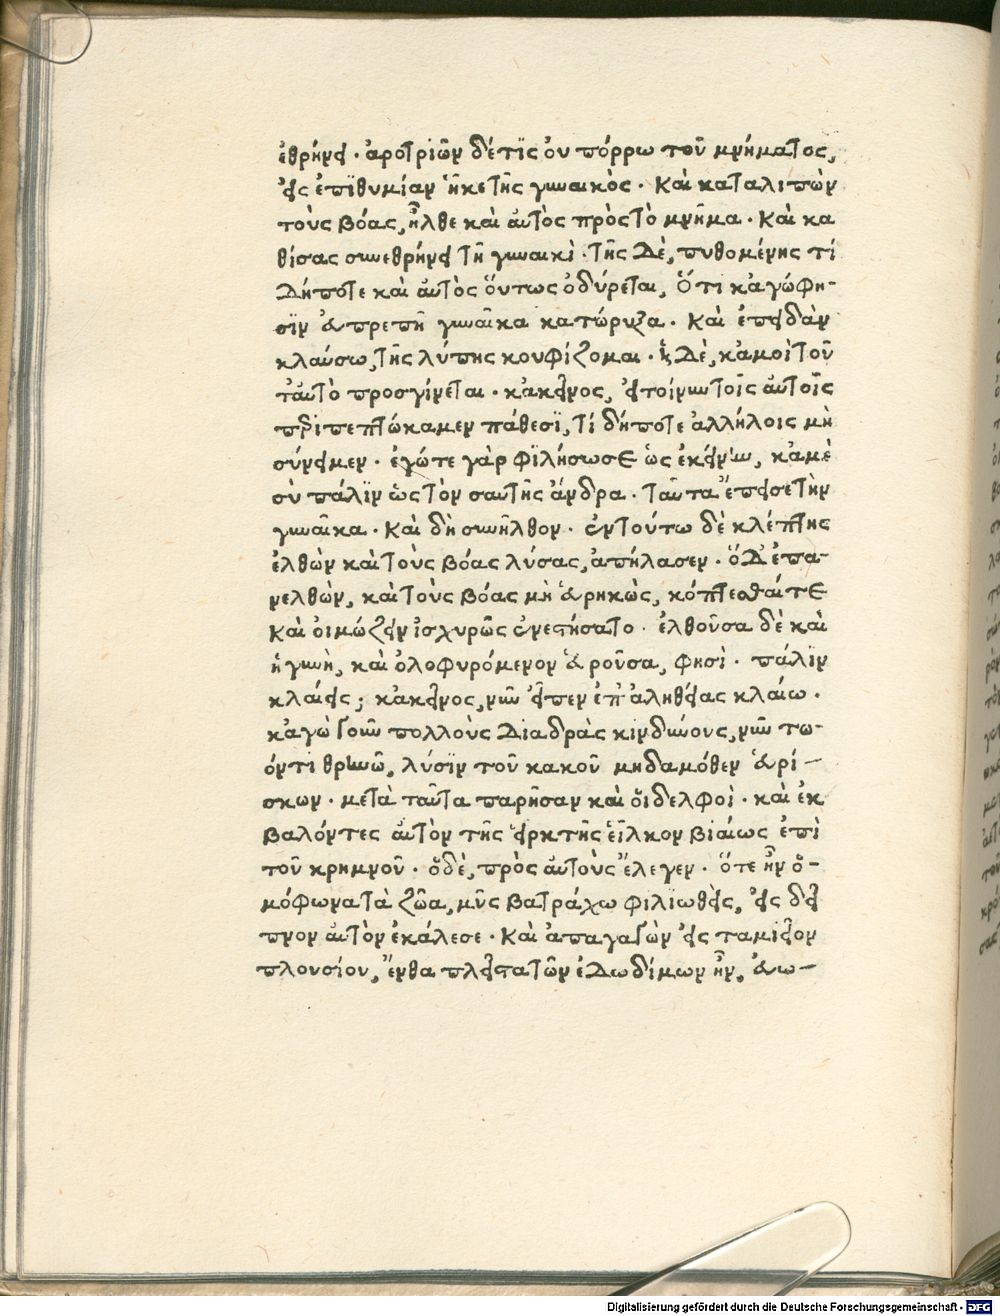 ἐθρήνει · ἀροτριῶν δέ τϊς οὐ πόρρω τοῦ μνήματος,
εἰς ἐπϊθυμίαν ἧκε τῆς γυναικὸς · Καὶ καταλιπὼν
τοὺς βόας, ἦλθε καὶ αὐτὸς πρὸς τὸ μνῆμα · Καὶ κα
θίσας συνεθρήνει τῇ γυναικὶ · τῆς δὲ, πυθομένης τί
δήποτε καὶ αὐτὸς οὕτως ὀδύρεται, ὅτι κἀγώ φη-
σϊν εὐπρεπῆ γυναῖκα κατώρυξα · Καὶ ἐπειδὰν
κλαύσω, τῆς λύπης κουφίζομαι · ἡ δὲ, κἀμοὶ τοῦ
τ' αὐτὸ προσγίνεται · κἀκεῖνος, εἰ τοίνυν τοῖς αὐτοῖς
περιπεπτώκαμεν πάθεσϊ, τί δήποτε ἀλλήλοις μὴ
σύνειμεν · ἐγώ τε γὰρ φϊλήσω σε ὡς ἐκείνην, κἀμὲ
σὺ πάλϊν ὡς τὸν σαυτῆς ἄνδρα · ταῦτα ἔπεισε τὴν
γυναῖκα · Καὶ δὴ συνῆλθον · ἐν τούτω δὲ κλέπτης
ἐλθὼν καὶ τοὺς βόας λύσας, ἀπήλασεν · ὁ δ' ἐπα-
νελθὼν, καὶ τοὺς βόας μὴ εὑρηκὼς, κόπτεσθαί τε
Καὶ οἰμώζειν ἰσχυρῶς ἐνεστήσατο · ἐλθοῦσα δὲ καὶ
ἡ γυνὴ, καὶ ὀλοφυρόμενον εὑροῦσα, φησὶ · πάλϊν
κλαίεις; κἀκεῖνος, νῦν εἶπεν ἐπ' ἀληθείας κλαίω ·
κἀγὼ γοῦν πολλοὺς διαδρὰς κινδύνους, νῦν τω-
όντι θρηνῶ, λύσϊν τοῦ κακοῦ μηδαμόθεν εὑρί-
σκων · μετὰ ταῦτα παρῆσαν καὶ οἵδελφοὶ · καὶ ἐκ
βαλόντες αὐτὸν τῆς εἱρκτῆς εἷλκον βιαίως ἐπὶ
τοῦ κρημνοῦ · ὁ δὲ, πρὸς αὐτοὺς ἔλεγεν · ὅτε ἦν ὁ-
μόφωνα τὰ ζῶα, μῦς βατράχω φιλϊωθεὶς, εἰς δεῖ
πνον αὐτὸν ἐκάλεσε · Καὶ ἀπαγαγὼν εἰς ταμιεῖον
πλουσίον, ἔνθα πλεῖστα τῶν ἐδωδίμων ἦν, εὐω-
Digitalisierung gefördert durch die Deutsche Forschungsgemeinschaft - DFG